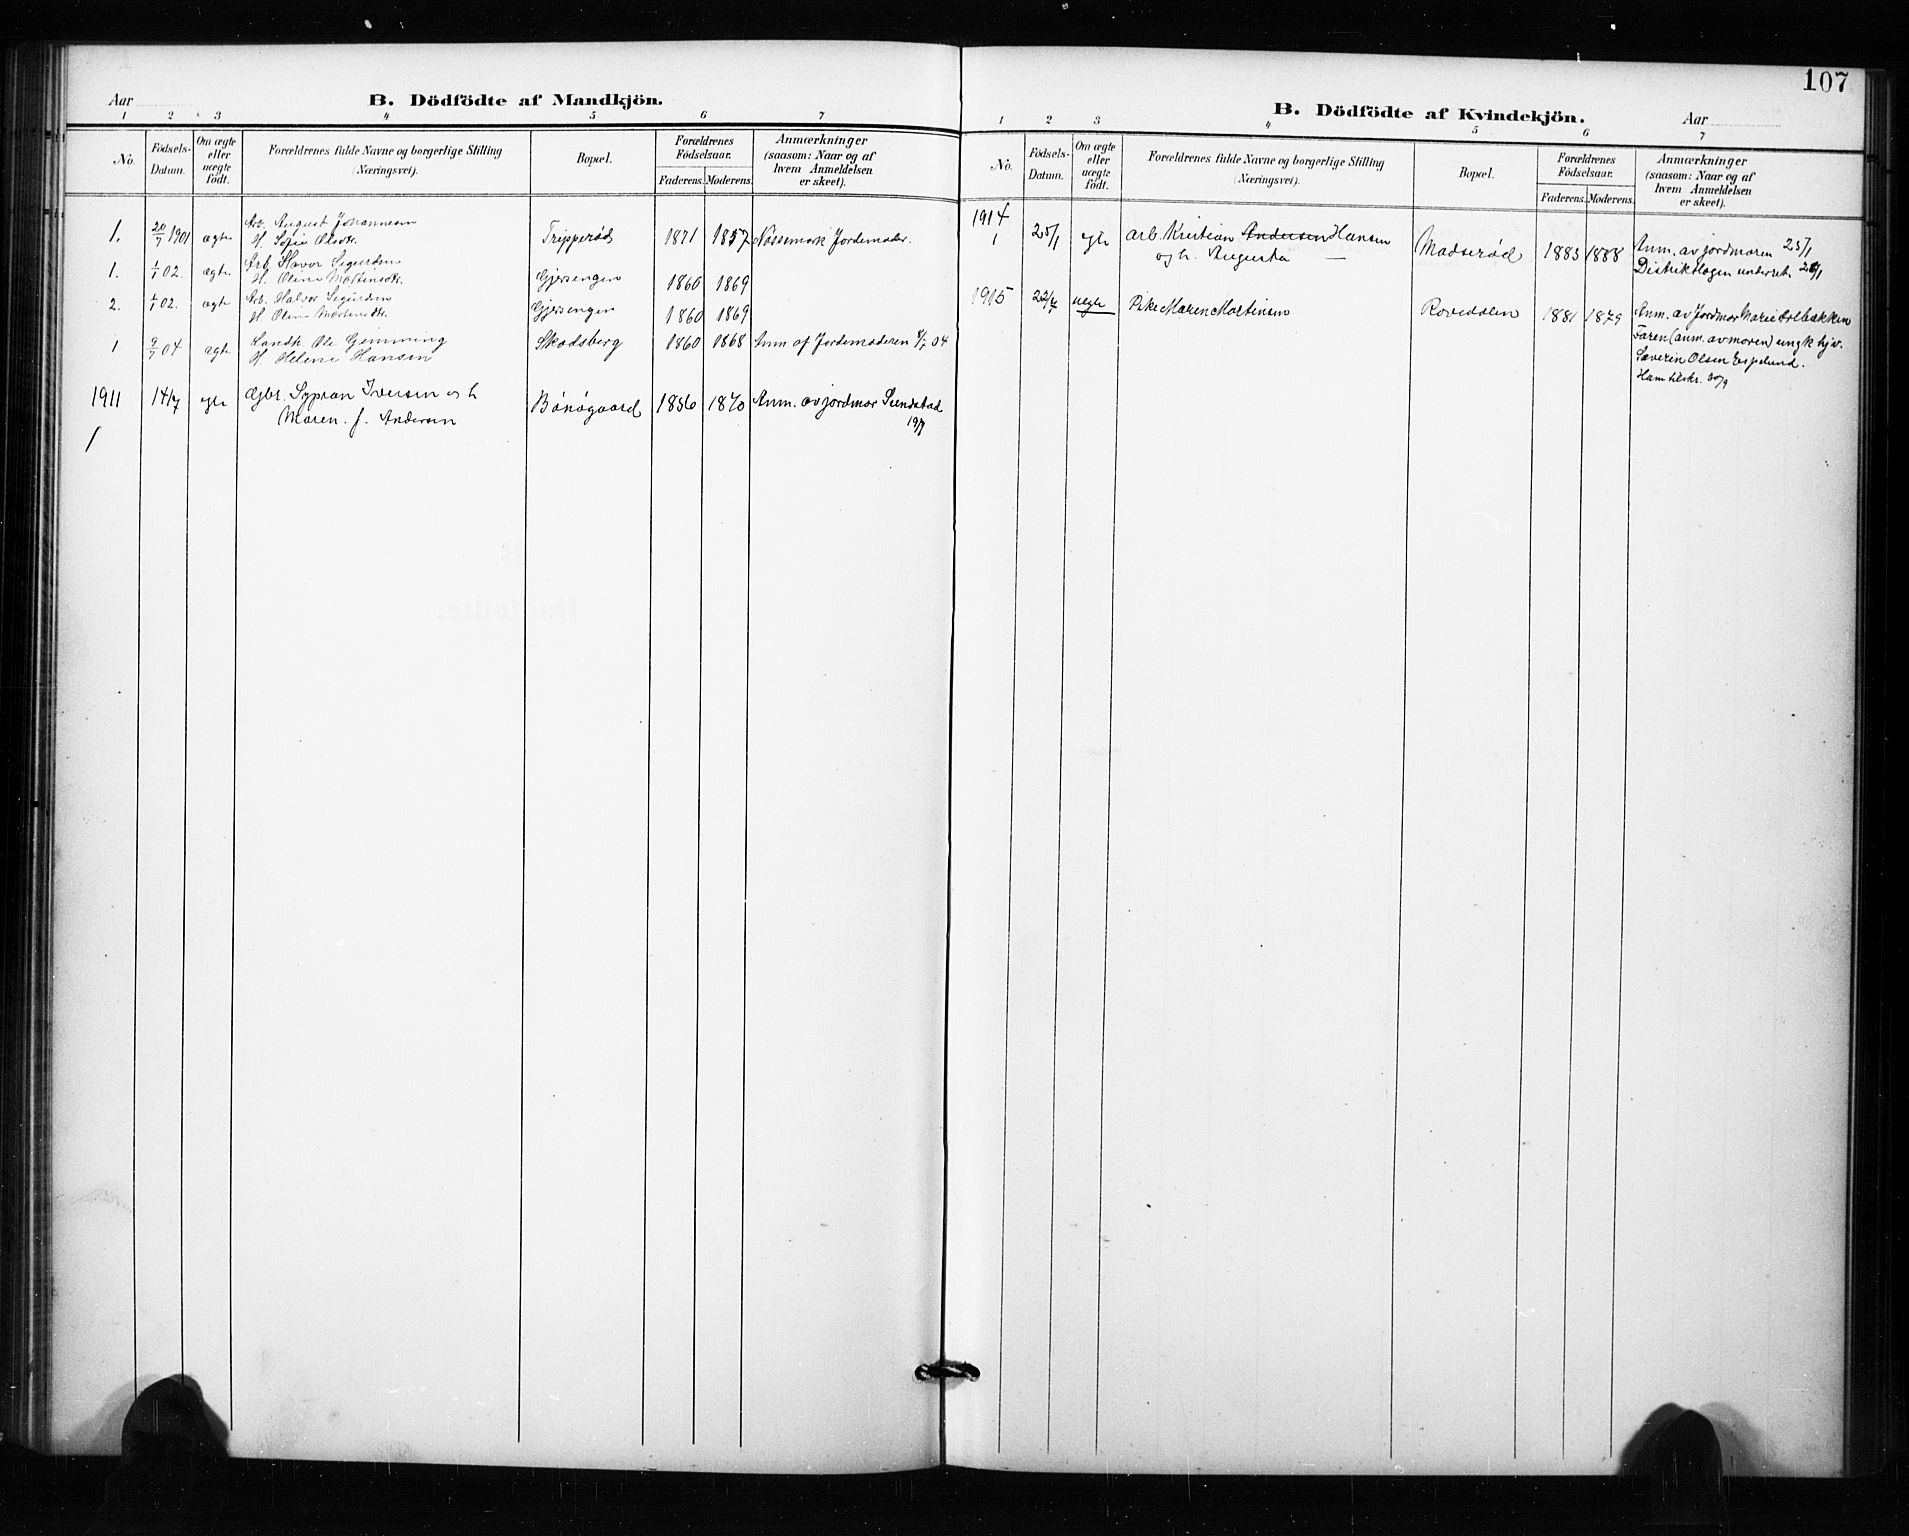 107
Aar
B. Dödfödte af Mandkjön.
1 2 3 4 5 6 7
No.
Födsels-
Datum.
Om ægte
eller
uægte
födt.
Forældrenes fulde Navne og borgerlige Stilling
(Næringsvei).
Bopæl.
Forældrenes
Födselsaar.
Faderens. Moderens.
Anmærkninger
(saasom: Naar og af
hvem Anmeldelsen
er skeet).
1. 20/7 1901 ægte Arb. August Johannesen
H. Sofie Olsdtr. Tripperöd 1871 1857 Nössemark Jordemoder.
1. 1/1 02. ægte Arb. Havor Sigurdsen
H. Oline Martinsdtr. Gjersengen 1860 1869
2. 1/1 02. ægte Arb. Halvor Sigurdsen
H. Oline Martinsdtr. Gjersengen 1860 1869
1 9/7 04 ægte Landh. Ole Gimming
H. Helene Hansen Skodsberg 1860 1868 Anm af Jordemoderen 04
1911 14/7 egte Gbr. Sypran Iversen og h
Maren f. Andersen Bönögaard 1856 1870 Anm. av jordmor
19/7
1
B. Dödfödte af Kvindekjön.
Aar
1 2 3 4 5 6 7
No.
Födsels-
Datum.
Om ægte
eller
uægte
födt.
Forældrenes fulde Navne og borgerlige Stilling
(Næringsvei).
Bopæl.
Forældrenes
Födselsaar.
Faderens. Moderens.
Anmærkninger
(saasom: Naar og af
hvem Anmeldelsen
er skeet).
1914
1 25/1 egte Arb. Kristian Andersen Hansen
og h. Augusta — Madserød 1883 1888 Anm. av jordmoren 25/1
Distriktslægen underret.
1915 22/7 uegte Pike Maren Martinsen Rovedalen 1881 1879 Anm. av Jordmor Marie Holbakken
Faren (anm. av moren) ungk hjv.
Severin Olsen Espelund.
Ham tilskr. 30/9